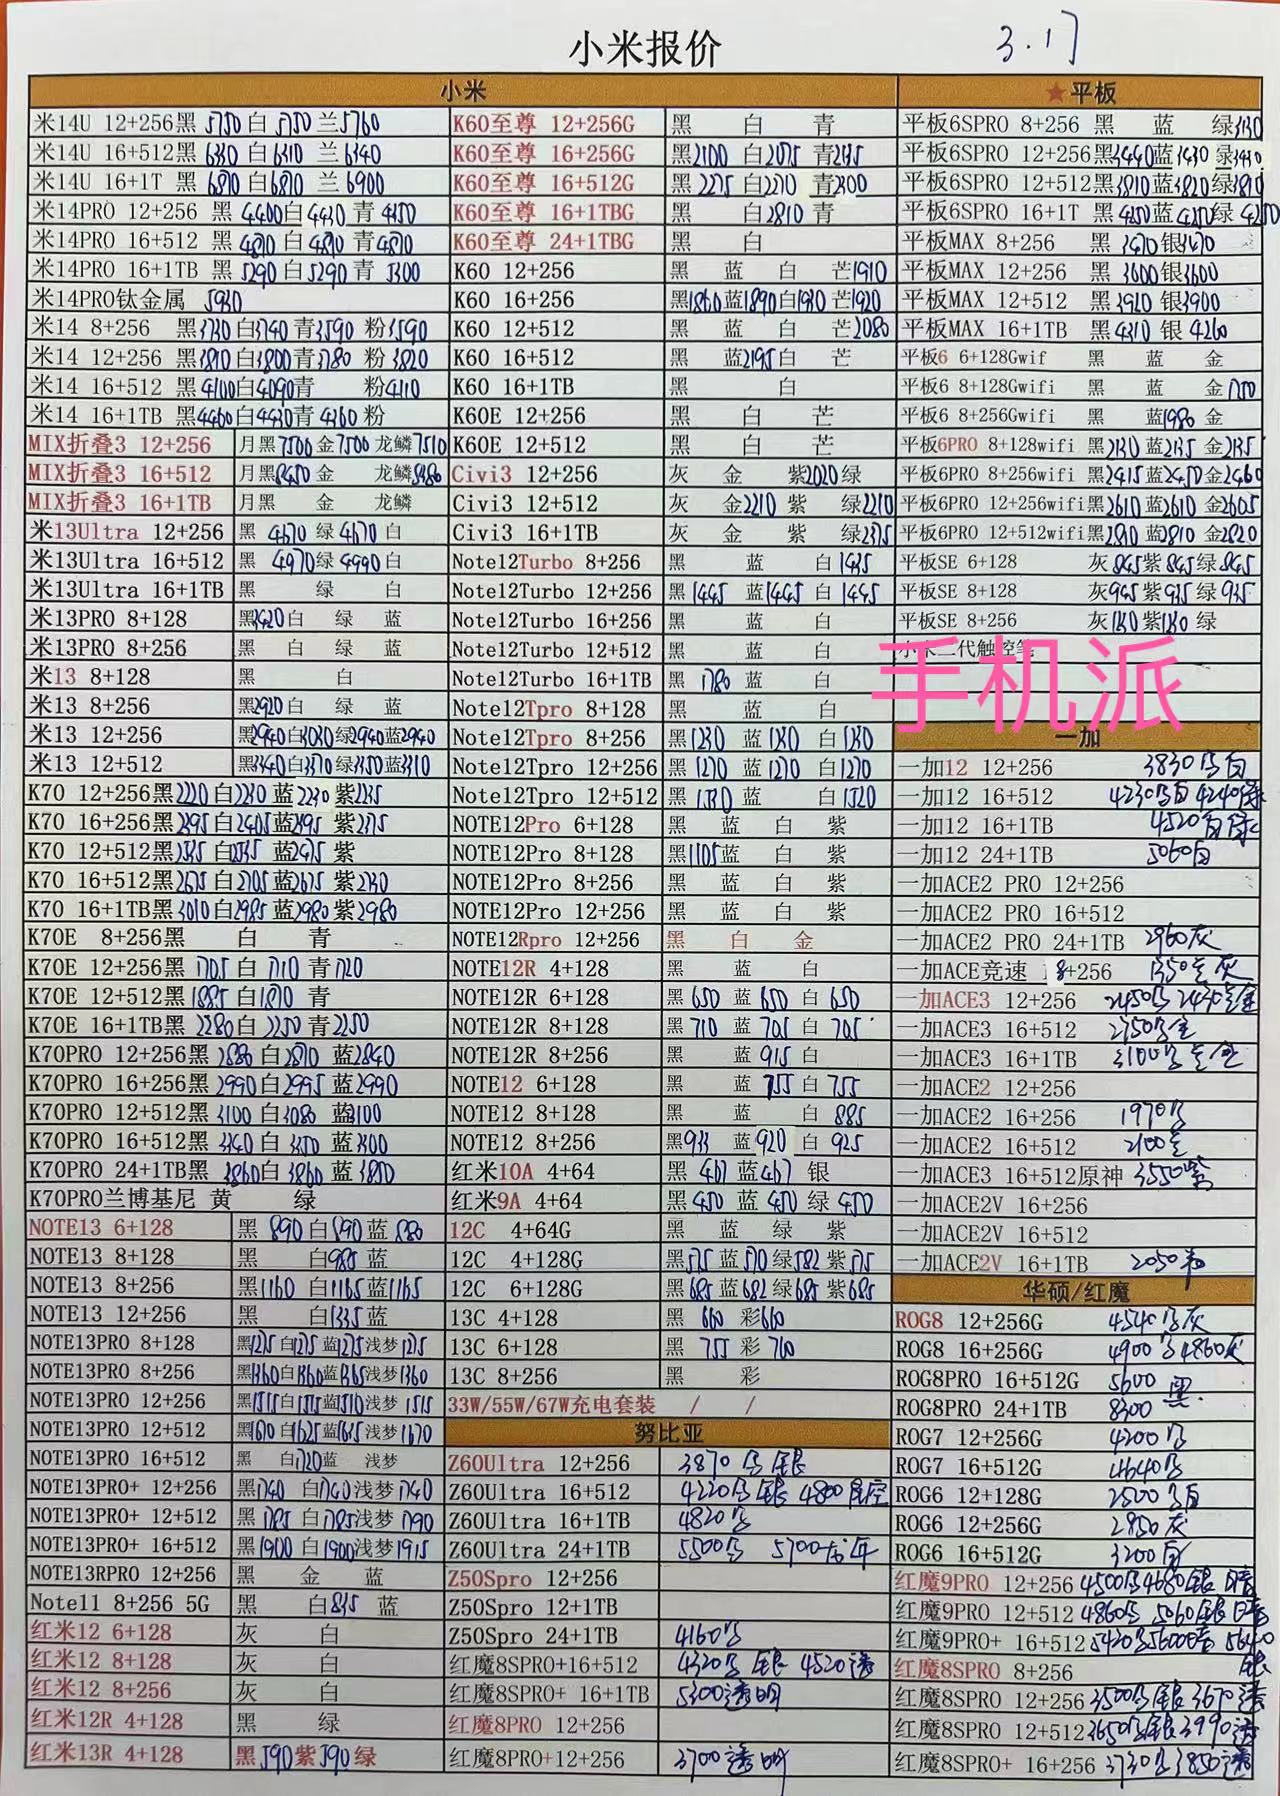 小米报价
3.17
小米
米14U 12+256黑 5750 白 5750 兰5760
米14U 16+512黑 6330 白6310 兰6340
米14U 16+1T 黑 6870 白6870 兰 6900
米14PRO 12+256 黑 4400白4430 青4450
米14PRO 16+512 黑 4870 白4870 青4870
米14PRO 16+1TB 黑 5290 白5290 青 5300
米14PRO钛金属 5930
米14 8+256 黑3730 白3740 青3590 粉3590
米14 12+256 黑3810 白3800青3780 粉3820
米14 16+512 黑4100白4090青 粉4110
米14 16+1TB 黑4460白4430青4360粉
MIX折叠3 12+256 月黑7500金7500龙鳞7510
MIX折叠3 16+512 月黑8450 金 龙鳞8480
MIX折叠3 16+1TB 月黑 金 龙鳞
米13Ultra 12+256 黑 4670 绿4670 白
米13Ultra 16+512 黑 4970绿4990白
米13Ultra 16+1TB 黑 绿 白
米13PRO 8+128 黑3420白 绿 蓝
米13PRO 8+256 黑 白 绿 蓝
米13 8+128 黑 白
米13 8+256 黑2920白 绿 蓝
米13 12+256 黑2940白3030绿2940蓝2940
米13 12+512 黑3340白3370绿3350蓝3310
K70 12+256黑2220白2230 蓝2230 紫2235
K70 16+256黑2395白2405蓝2395 紫2375
K70 12+512黑 白 蓝 紫
K70 16+512黑2675白2705蓝2675 紫
K70 16+1TB黑3010白2985 蓝2980 紫2980
K70E 8+256黑 白 青
K70E 12+256黑 1705 白 1710 青1720
K70E 12+512黑1885 白1870 青
K70E 16+1TB黑 2280白 2250 青2250
K70PRO 12+256黑 2880 白2870 蓝2840
K70PRO 16+256黑2990白2995 蓝2990
K70PRO 12+512黑3100 白3080 蓝3100
K70PRO 16+512黑3340 白3350 蓝3300
K70PRO 24+1TB黑 3860白3860 蓝3850
K70PRO兰博基尼 黄 绿
NOTE13 6+128 黑 890 白890蓝 880
NOTE13 8+128 黑 白985 蓝
NOTE13 8+256 黑1160 白1165蓝1165
NOTE13 12+256 黑 白1335 蓝
NOTE13PRO 8+128 黑1275白1275蓝1275浅梦1275
NOTE13PRO 8+256 黑1360白1360蓝1365浅梦1360
NOTE13PRO 12+256 黑1515白1515蓝1510浅梦1515
NOTE13PRO 12+512 黑1670白1625蓝1635浅梦1670
NOTE13PRO 16+512 黑 白1720蓝 浅梦
NOTE13PRO+ 12+256 黑1740 白1740浅梦1740
NOTE13PRO+ 12+512 黑1785 白1785浅梦1790
NOTE13PRO+ 16+512 黑1900 白1900浅梦1915
NOTE13RPRO 12+256 黑 金 蓝
Note11 8+256 5G 黑 白835 蓝
红米12 6+128 灰 白
红米12 8+128 灰 白
红米12 8+256 灰 白
红米12R 4+128 黑 绿
红米13R 4+128 黑590紫590绿
K60至尊 12+256G 黑 白 青
K60至尊 16+256G 黑2100 白2075 青2135
K60至尊 16+512G 黑2275 白2270 青2300
K60至尊 16+1TBG 黑 白2810 青
K60至尊 24+1TBG 黑 白
K60 12+256 黑 蓝 白 芒1910
K60 16+256 黑1860蓝1890白1930芒1920
K60 12+512 黑 蓝 白 芒2080
K60 16+512 黑 蓝2195白 芒
K60 16+1TB 黑 白
K60E 12+256 黑 白 芒
K60E 12+512 黑 白 芒
Civi3 12+256 灰 金 紫2020绿
Civi3 12+512 灰 金2210 紫 绿2210
Civi3 16+1TB 灰 金 紫 绿2375
Note12Turbo 8+256 黑 蓝 白1435
Note12Turbo 12+256 黑1445 蓝1445 白1445
Note12Turbo 16+256 黑 蓝 白
Note12Turbo 12+512 黑 蓝 白
Note12Turbo 16+1TB 黑 1780 蓝 白
Note12Tpro 8+128 黑 蓝 白
Note12Tpro 8+256 黑1230 蓝 白
Note12Tpro 12+256 黑 1270 蓝1270 白1270
Note12Tpro 12+512 黑 蓝 白
NOTE12Pro 6+128 黑 蓝 白 紫
NOTE12Pro 8+128 黑1105蓝 白 紫
NOTE12Pro 8+256 黑 蓝 白 紫
NOTE12Pro 12+256 黑 蓝 白 紫
NOTE12Rpro 12+256 黑 白 金
NOTE12R 4+128 黑 蓝 白
NOTE12R 6+128 黑 650 蓝 650 白 650
NOTE12R 8+128 黑 710 蓝 705 白 705
NOTE12R 8+256 黑 蓝 915 白
NOTE12 6+128 黑 蓝 755 白 755
NOTE12 8+128 黑 蓝 白 885
NOTE12 8+256 黑933 蓝920 白 925
红米10A 4+64 黑 467 蓝467 银
红米9A 4+64 黑 450 蓝 450 绿 450
12C 4+64G 黑 蓝 绿 紫
12C 4+128G 黑575 蓝570绿582 紫575
12C 6+128G 黑685 蓝682绿685 紫685
13C 4+128 黑 660 彩660
13C 6+128 黑 755 彩 760
13C 8+256 黑 彩
33W/55W/67W充电套装 / /
努比亚
Z60Ultra 12+256 3870 乌 银
Z60Ultra 16+512 4220乌 银 4800星空
Z60Ultra 16+1TB 4820乌
Z60Ultra 24+1TB 5500乌 5700
Z50Spro 12+256
Z50Spro 12+1TB
Z50Spro 24+1TB 4160乌
红魔8SPRO+16+512 4320乌 银 4520透
红魔8SPRO+ 16+1TB 5300透明
红魔8PRO 12+256
红魔8PRO+12+256 3700透明
★平板
平板6SPRO 8+256 黑 蓝 绿3130
平板6SPRO 12+256黑3440蓝3430 绿3430
平板6SPRO 12+512黑3810蓝3820绿3810
平板6SPRO 16+1T 黑4250蓝4250绿 4250
平板MAX 8+256 黑 3470银3470
平板MAX 12+256 黑 3600银3600
平板MAX 12+512 黑 3920 银3900
平板MAX 16+1TB 黑 4310 银 4260
平板6 6+128Gwif 黑 蓝 金
平板6 8+128Gwifi 黑 蓝 金1750
平板6 8+256Gwifi 黑 蓝1980 金
平板6PRO 8+128wifi 黑2130 蓝2135 金2135
平板6PRO 8+256wifi 黑2415蓝2450金2460
平板6PRO 12+256wifi黑2610蓝2610 金2605
平板6PRO 12+512wifi黑2810 蓝2810 金2820
平板SE 6+128 灰845紫845绿845
平板SE 8+128 灰945紫935绿 935
平板SE 8+256 灰 紫 绿
手机派
一加
一加12 12+256 3830乌白
一加12 16+512 4230乌白 4240绿
一加12 16+1TB 4520白绿
一加12 24+1TB 5060白
一加ACE2 PRO 12+256
一加ACE2 PRO 16+512
一加ACE2 PRO 24+1TB 2960灰
一加ACE竞速 8+256 1350 灰
一加ACE3 12+256 2450乌 2430 金
一加ACE3 16+512 2750乌金
一加ACE3 16+1TB 3100乌 金
一加ACE2 12+256
一加ACE2 16+256 1970乌
一加ACE2 16+512 2100
一加ACE3 16+512原神 3550紫
一加ACE2V 16+256
一加ACE2V 16+512
一加ACE2V 16+1TB 2050
华硕/红魔
ROG8 12+256G 4540乌灰
ROG8 16+256G 4900乌4860灰
ROG8PRO 16+512G 5600
ROG8PRO 24+1TB 8300 黑
ROG7 12+256G 4200乌
ROG7 16+512G 4640乌
ROG6 12+128G 2500乌白
ROG6 12+256G 2850灰
ROG6 16+512G 3200白
红魔9PRO 12+256 4500乌4680银
红魔9PRO 12+512 4860乌 5060银
红魔9PRO+ 16+512 5420乌5600 5640银
红魔8SPRO 8+256
红魔8SPRO 12+256 3500乌银3670透
红魔8SPRO 12+512 3650乌银3990透
红魔8SPRO+ 16+256 3730乌3850透